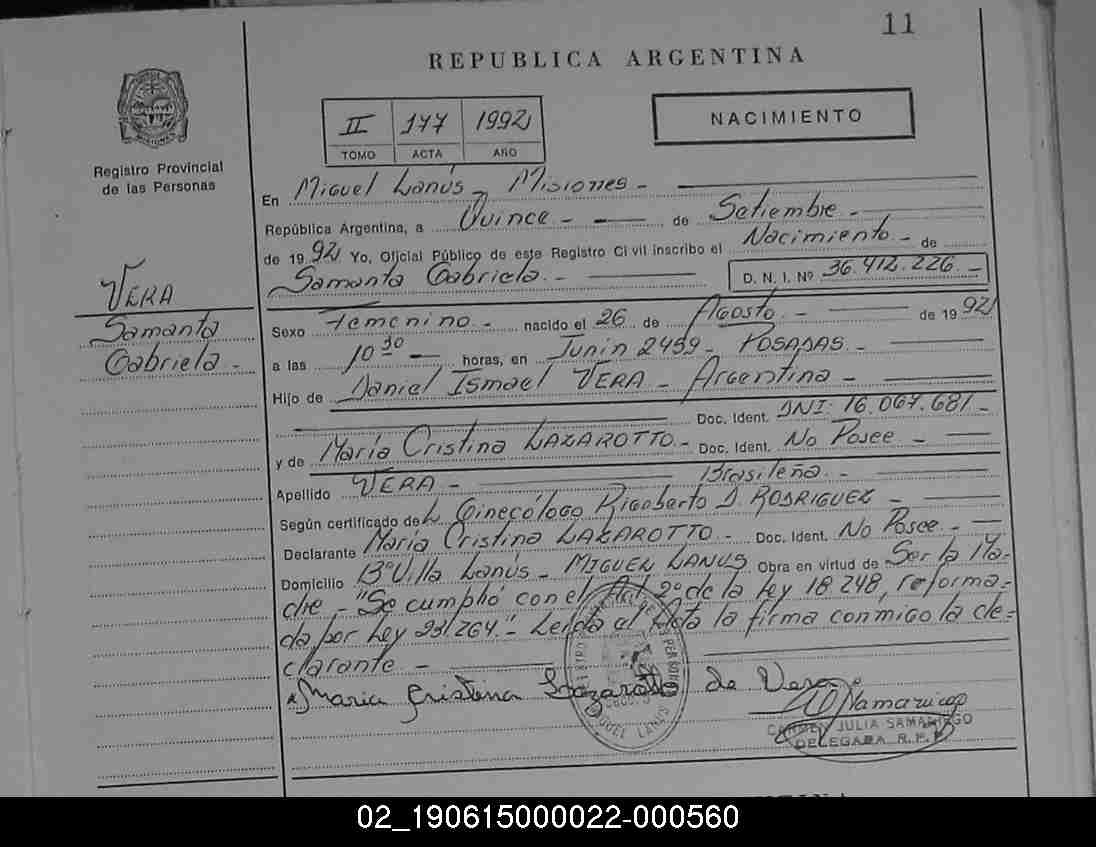 11
REPUBLICA ARGENTINA
II 177 1992
TOMO ACTA AÑO
NACIMIENTO
Registro Provincial
de las Personas
VERA
Samanta
Gabriela -
En Miguel Lanús - Misiones -
República Argentina, a Quince - de Setiembre -
de 1992 Yo, Oficial Público de este Registro Civil inscribo el Nacimiento - de
Samanta Gabriela - D. N. I. Nº 36.412.226 -
Sexo Femenino - nacido el 26 de Agosto - de 1992
a las 10 30 horas, en Junin 2459 - POSADAS -
Hijo de Daniel Ismael VERA - Argentina -
Doc. Ident. DNI: 16.067.681 -
y de María Cristina LAZAROTTO - Doc. Ident. No Posee -
Apellido VERA - Brasileña -
Según certificado de L. Ginecólogo Rigoberto D. RODRIGUEZ -
Declarante María Cristina LAZAROTTO - Doc. Ident. No Posee -
Domicilio Bº Villa Lanús - MIGUEL LANUS Obra en virtud de Ser la Ma-
dre - "Se cumplió con el Art. 2º de la Ley 18.248, reforma=
da por Ley 23.264" - Leida el Acta la firma conmigo la de=
clarante -
Maria Cristina Lazarotto de Vera
CARMEN JULIA SAMANIEGO
DELEGADA R.P.P.
MIGUEL LANUS
02_190615000022-000560